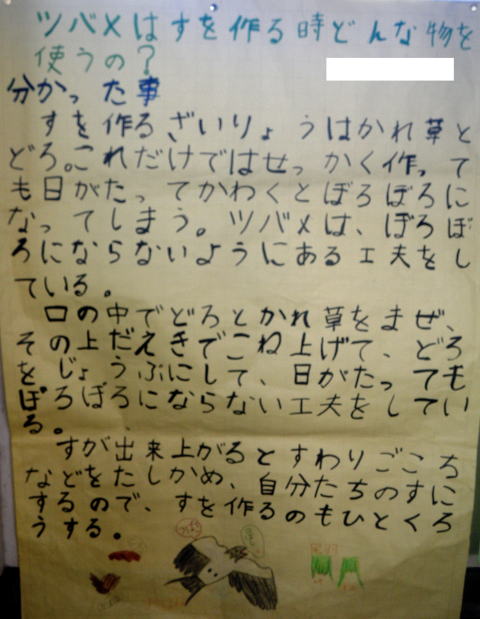 ツバメはすを作る時どんな物を
使うの？
分かった事
すを作るざいりょうはかれ草と
どろ。これだけではせっかく作って
も日がたってかわくとぼろぼろに
なってしまう。ツバメは、ぼろぼ
ろにならないようにある工夫をし
ている。
口の中でどろとかれ草をまぜ、
その上だえきでこね上げて、どろ
をじょうぶにして、日がたっても
ぼろぼろにならない工夫をしてい
る。
すが出来上がるとすわりごこち
などをたしかめ、自分たちのすに
するので、すを作るのもひとくろ
うする。